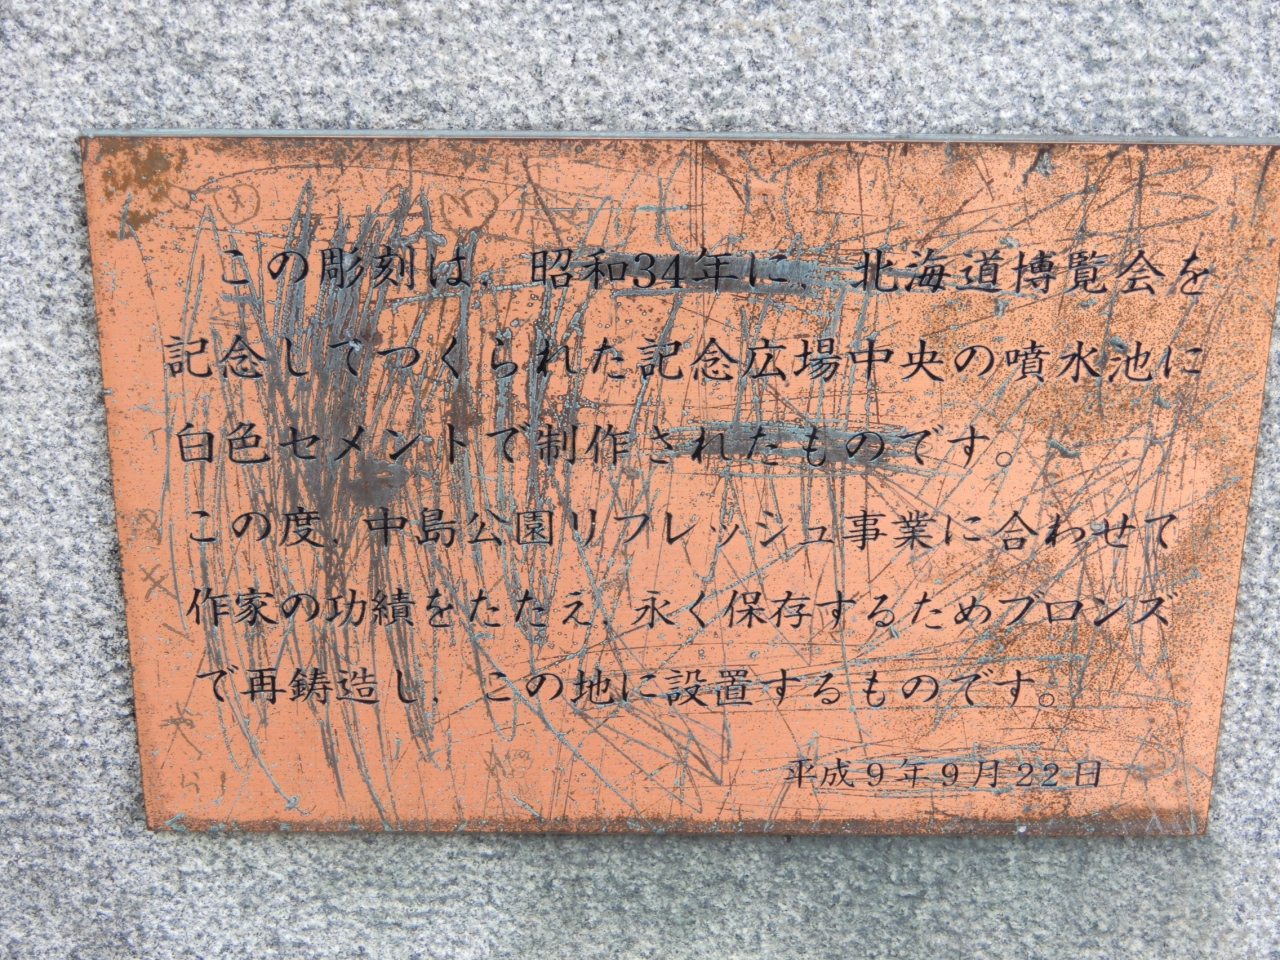 この彫刻は、昭和34年に、北海道博覧会を
記念してつくられた記念広場中央の噴水池に
白色セメントで制作されたものです。
この度、中島公園リフレッシュ事業に合わせて
作家の功績をたたえ、永く保存するためブロンズ
で再鋳造し、この地に設置するものです。
平成9年9月22日